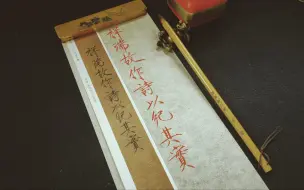 祥瑞故作詩以紀其實
祥瑞故作詩以紀其實